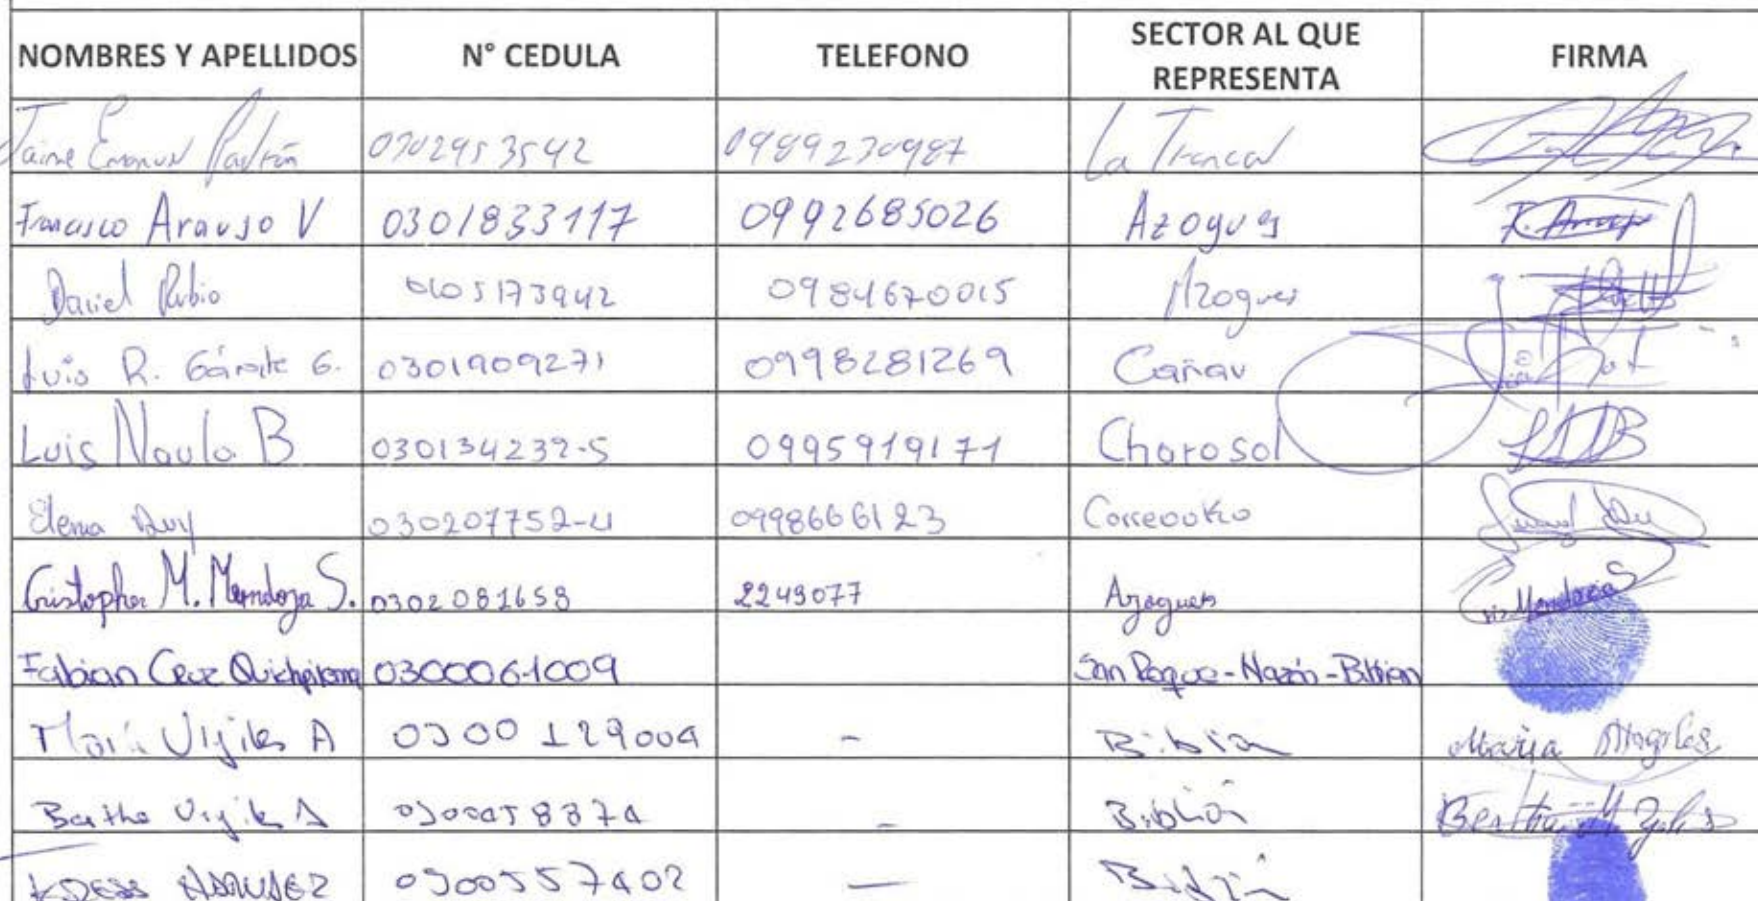 NOMBRES Y APELLIDOS N° CEDULA TELEFONO SECTOR AL QUE REPRESENTA FIRMA
Jaime Padrón 0302953542 0989230987 La Troncal
Francisco Arauso V 0301833117 0992685026 Azogues
Daniel Rubio 0105173942 0984670015 Azogues
Luis R. Gárate G. 0301909271 0998281269 Cañar
Luis Naula B 030134239-5 0995919171 Charosol
Elena 030207752-4 0998666123
Cristopher M. Mendoza S. 0302081658 2249077 Azogues Cris Mendoza S
Fabian Cruz Quichpirema 0300061009 San Roque-Nazón-Biblian
María Vijiles A 0300129004 - Biblian María
Bertha Vijiles A 0300058374 - Biblián Bertha
0300557402 — Biblián